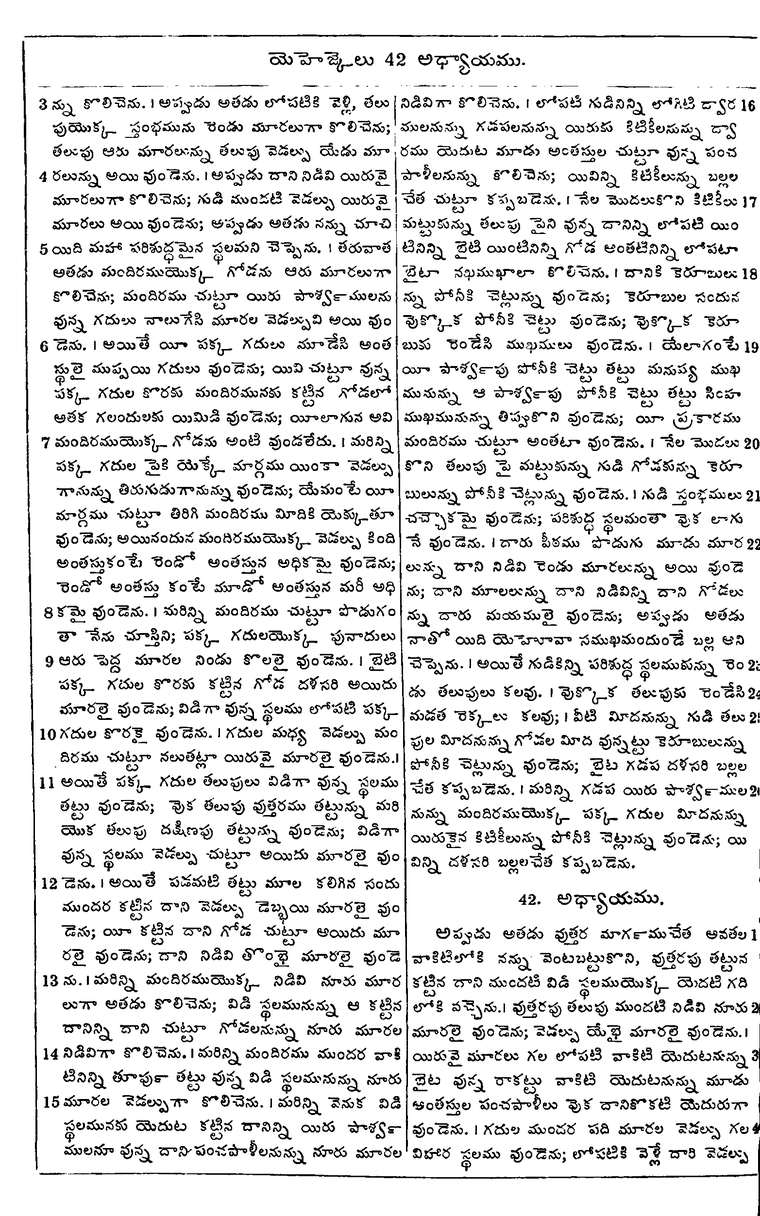 యెహెజ్కేలు 42 అధ్యాయము.
3 న్ను కొలిచెను. । అప్పుడు అతడు లోపటికి వెళ్లి, తలు
పుయొక్క స్తంభమును రెండు మూరలుగా కొలిచెను;
తలుపు ఆరు మూరలున్ను తలుపు వెడల్పు యేడు మూ
4 రలున్ను అయి వుండెను. । అప్పుడు దాని నిడివి యిరువై
మూరలుగా కొలిచెను; గుడి ముందటి వెడల్పు యిరువై
మూరలు అయి వుండెను; అప్పుడు అతడు నన్ను చూచి
5 యిది మహా పరిశుద్ధమైన స్థలమని చెప్పెను. । తరువాత
అతడు మందిరముయొక్క గోడను ఆరు మూరలుగా
కొలిచెను; మందిరము చుట్టూ యిరు పార్శ్వములను
వున్న గదులు నాలుగేసి మూరల వెడల్పువి అయి వుం
6 డెను. । అయితే యీ పక్క గదులు మూడేసి అంత
స్థులై ముప్పయి గదులు వుండెను; యివి చుట్టూ వున్న
పక్క గదుల కొరకు మందిరమునకు కట్టిన గోడలో
అతక గలందులకు యిమిడి వుండెను; యీలాగున అవి
7 మందిరముయొక్క గోడను అంటి వుండలేదు. । మరిన్ని
పక్క గదుల పైకి యెక్కే మార్గము యింకా వెడల్పు
గానున్ను తిరుగుడుగానున్ను వుండెను; యేమంటే యీ
మార్గము చుట్టూ తిరిగి మందిరము మీదికి యెక్కుతూ
వుండెను; అయినందున మందిరముయొక్క వెడల్పు కింది
అంతస్తుకంటే రెండో అంతస్తున అధికమై వుండెను;
రెండో అంతస్తు కంటే మూడో అంతస్తున మరీ అధి
8 కమై వుండెను. । మరిన్ని మందిరము చుట్టూ పొడుగం
తా నేను చూస్తిని; పక్క గదులయొక్క పునాదులు
9 ఆరు పెద్ద మూరల నిండు కొలలై వుండెను. । బైటి
పక్క గదుల కొరకు కట్టిన గోడ దళసరి అయిదు
మూరలై వుండెను; విడిగా వున్న స్థలము లోపటి పక్క
10 గదుల కొరకై వుండెను. । గదుల మధ్య వెడల్పు మం
దిరము చుట్టూ నలుతట్లా యిరువై మూరలై వుండెను. ।
11 అయితే పక్క గదుల తలుపులు విడిగా వున్న స్థలము
తట్టు వుండెను; వొక తలుపు వుత్తరము తట్టున్ను మరి
యొక తలుపు దక్షిణపు తట్టున్ను వుండెను; విడిగా
వున్న స్థలము వెడల్పు చుట్టూ అయిదు మూరలై వుం
12 డెను. । అయితే పడమటి తట్టు మూల కలిగిన సందు
ముందర కట్టిన దాని వెడల్పు డెబ్భయి మూరలై వుం
డెను; యీ కట్టిన దాని గోడ చుట్టూ అయిదు మూ
రలై వుండెను; దాని నిడివి తొంభై మూరలై వుండె
13 ను. । మరిన్ని మందిరముయొక్క నిడివి నూరు మూర
లుగా అతడు కొలిచెను; విడి స్థలమునున్ను ఆ కట్టిన
దానిన్ని దాని చుట్టూ గోడలనున్ను నూరు మూరల
14 నిడివిగా కొలిచెను. । మరిన్ని మందిరము ముందర వాకి
టినిన్ని తూర్పు తట్టు వున్న విడి స్థలమునున్ను నూరు
15 మూరల వెడల్పుగా కొలిచెను. । మరిన్ని వెనుక విడి
స్థలమునకు యెదుట కట్టిన దానిన్ని యిరు పార్శ్వ
ములనూ వున్న దాని పంచపాళీలనున్ను నూరు మూరల
నిడివిగా కొలిచెను. । లోపటి గుడినిన్ని లోగిటి ద్వార 16
ములనున్ను గడపలనున్ను యిరుకు కిటికీలనున్ను ద్వా
రము యెదుట మూడు అంతస్తుల చుట్టూ వున్న పంచ
పాళీలనున్ను కొలిచెను; యివిన్ని కిటికీలున్ను బల్లల
చేత చుట్టూ కప్పబడెను. । నేల మొదలుకొని కిటికీలు 17
మట్టుకున్ను తలుపు పైని వున్న దానిన్ని లోపటి యిం
టినిన్ని బైటి యింటినిన్ని గోడ అంతటినిన్ని లోపటా
బైటా నఖముఖాలా కొలిచెను. । దానికి కెరూబులు 18
న్ను పోనీకి చెట్లున్ను వుండెను; కెరూబుల సందున
వొక్కొక పోనీకి చెట్టు వుండెను; వొక్కొక కెరూ
బుకు రెండేసి ముఖములు వుండెను. । యేలాగంటే 19
యీ పార్శ్వపు పోనీకి చెట్టు తట్టు మనుష్య ముఖ
మునున్ను ఆ పార్శ్వపు పోనీకి చెట్టు తట్టు సింహ
ముఖమునున్ను తిప్పుకొని వుండెను; యీ ప్రకారము
మందిరము చుట్టూ అంతటా వుండెను. । నేల మొదలు 20
కొని తలుపు పై మట్టుకున్ను గుడి గోడకున్ను కెరూ
బులున్ను పోనీకి చెట్లున్ను వుండెను. । గుడి స్తంభములు 21
చచ్చౌకమై వుండెను; పరిశుద్ధ స్థలమంతా వొక లాగు
నే వుండెను. । దారు పీఠము పొడుగు మూడు మూర 22
లున్ను దాని నిడివి రెండు మూరలున్ను అయి వుండె
ను; దాని మూలలున్ను దాని నిడివిన్ని దాని గోడలు
న్ను దారు మయములై వుండెను; అప్పుడు అతడు
నాతో యిది యెహోవా సముఖమందుండే బల్ల అని
చెప్పెను. । అయితే గుడికిన్ని పరిశుద్ధ స్థలముకున్ను రెం 23
డు తలుపులు కలవు. । వొక్కొక తలుపుకు రెండేసి 24
మడత రెక్కలు కలవు; । వీటి మీదనున్ను గుడి తలు 25
పుల మీదనున్ను గోడల మీద వున్నట్టు కెరూబులున్ను
పోనీకి చెట్లున్ను వుండెను; బైట గడప దళసరి బల్లల
చేత కప్పబడెను. । మరిన్ని గడప యిరు పార్శ్వముల 26
నున్ను మందిరముయొక్క పక్క గదుల మీదనున్ను
యిరుకైన కిటికీలున్ను పోనీకి చెట్లున్ను వుండెను; యి
విన్ని దళసరి బల్లలచేత కప్పబడెను.
42. అధ్యాయము.
అప్పుడు అతడు వుత్తర మార్గముచేత అవతల 1
వాకిటిలోకి నన్ను వెంటబట్టుకొని, వుత్తరపు తట్టున
కట్టిన దాని ముందటి విడి స్థలముయొక్క యెదటి గది
లోకి వచ్చెను. । వుత్తరపు తలుపు ముందటి నిడివి నూరు 2
మూరలై వుండెను; వెడల్పు యేభై మూరలై వుండెను. ।
యిరువై మూరలు గల లోపటి వాకిటి యెదుటనున్ను 3
బైట వున్న రాకట్టు వాకిటి యెదుటనున్ను మూడు
అంతస్తుల పంచపాళీలు వొక దానికొకటి యెదురుగా
వుండెను. । గదుల ముందర పది మూరల వెడల్పు గల 4
విహార స్థలము వుండెను; లోపటికి వెళ్లే దారి వెడల్పు